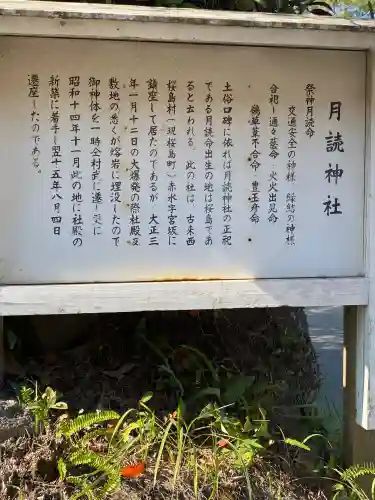 月読神社
祭神月読命
交通安全の神様　縁結の神様
合祀ハ邇々藝命　火火出見命
鵜草葺不合命　豊玉彦命
土俗口碑に依れば月読神社の正祀
である月読命出生の地は桜島であ
ると云われる。此の社は、古来西
桜島村（一現桜島町）赤水字宮坂に
鎮座して居たのであるが　大正三
年一月十二日の大爆発の際社殿及
敷地の悉くが熔岩に埋没したので
御神体を一時全村武に遷し
昭和十四年十一月此の地に社殿の
新築に着手し翌十五年八月四日
遷座したのである。